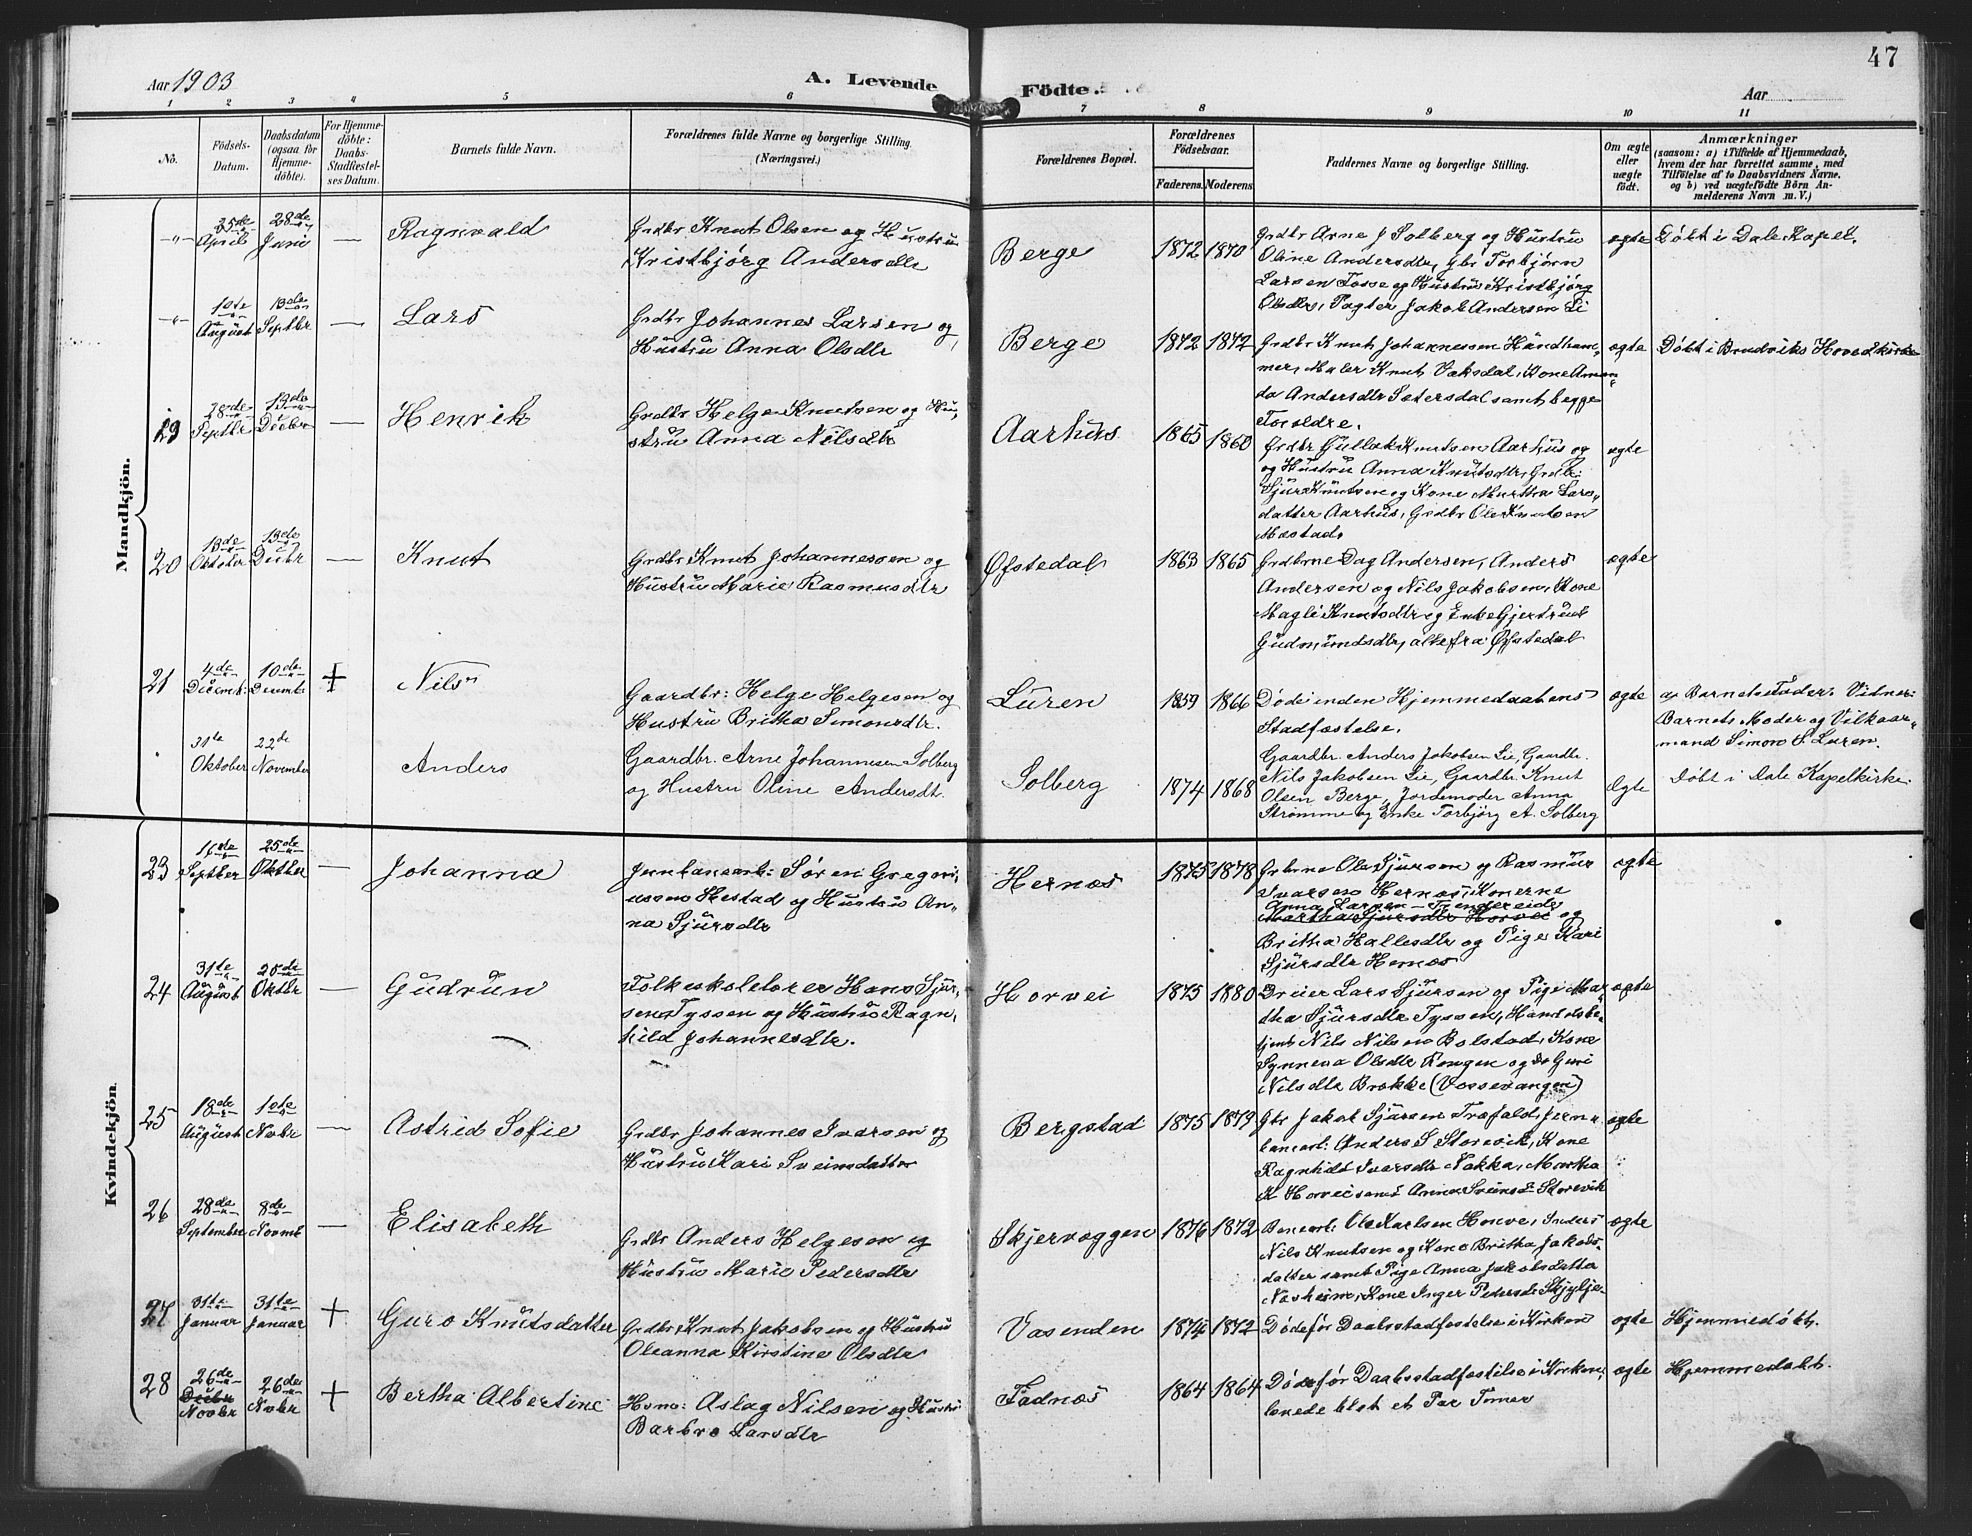 47
Aar 1903
A. Levende Födte.
Aar
1 2 3 4 5 6 7 8 9 10 11
Nô.
Födsels-Datum.
Daabsdatum (ogsaa for Hjemmedöbte).
For Hjemmedöbte: Daabs-Stadfæstelses Datum.
Barnets fulde Navn.
Forældrenes fulde Navne og borgerlige Stilling. (Næringsvei.)
Forældrenes Bopæl.
Forældrenes Födselsaar.
Faderens. Moderens.
Faddernes Navne og borgerlige Stilling.
Om ægte eller uægte födt.
Anmærkninger
(saasom: a) i Tilfælde af Hjemmedaab,
hvem der har forrettet samme, med
Tilföielse af to Daabsvidners Navne,
og b) ved uægtefödte Börn An-
melderens Navn m. V.)
Mandkjön.
-"- 25de April 28de Juni — Ragnvald
Grdbr Knut Olsen og Hustru
Kristbjørg Andersdtr
Berge 1872 1870
Grdbr Arne J Solberg og Hustru
Oline Andersdtr, Gbr Torbjørn
Larsen Fosse og Hustru Kristbjørg
Olsdtr, Pagter Jakob Andersen Li
ægte Døbt i Dale Kapel.
-"- 10te August 13de Septbr — Lars
Grdbr Johannes Larsen og
Hustru Anna Olsdtr
Berge 1872 1872
Grdbr Knut Johannessen Handham-
mer, Maler Knut Vaksdal, Kone Aman-
da Andersdtr Setersdal samt begge
Foreldre.
ægte Døbt i Brudviks Hovedkirke
19 28de Septbr 13de Decbr — Henrik
Grdbr Helge Knutsen og Hu-
stru Anna Nilsdtr
Aarhus 1865 1860
Grdbr Gullak Knutsen Aarhus og
og Hustru Anna Knutsdtr, Grdb:
Sjur Knutsen og Kone Martha Lars-
datter Aarhus, Grdbr Ole Knutsen
Mæstad.
ægte
20 13de Oktober 13de Decbr — Knut
Grdbr Knut Johannessen og
Hustru Marie Rasmusdtr
Øfstedal 1863 1865
Grdbrne Dag Andersen, Anders
Andersen og Nils Jakobsen, Kone
Magli Knutsdtr og Enke Gjertrud
Gudmundsdtr, alle fra Øfstedal
ægte
21 4de Decemb: 10de Decembr + Nils
Gaardbr: Helge Helgesen og
Hustru Britha Simonsdtr.
Luren 1859 1866
Døde inden Hjemmedaabens
Stadfæstelse.
ægte
af Barnets Fader. Vidner:
Barnets Moder og Vilkaar-
mand Simon S. Luren.
31te Oktober 22de November Anders
Gaardbr. Arne Johannesen Solberg
og Hustru Oline Andersdt.
Solberg 1874 1868
Gaardbr. Anders Jakobsen Lie, Gaardbr.
Nils Jakobsen Lie, Gaardbr. Knut
Olsen Berge, Jordemoder Anna
Strømme og Enke Torbjørg A. Solberg
Ægte Døbt i Dale Kapelkirke.
Kvindekjön.
23 16de Septber 25de Oktber — Johanna
Jernbanearb: Søren Gregori-
ussen Hestad og Hustru An-
na Sjursdtr
Hernæs 1875 1878
Grbrne Ole Sjursen og Rasmus
Ivarsen Hernæs, Konerne
Anna Larsen — Tjendereide
Martha Sjursdtr Horvei og
Britha Hallesdtr og Pige Kari
Sjursdtr Hernæs
ægte
24 31te August 25de Oktbr — Gudrun
Folkeskolelærer Hans Sjur-
sen Tyssen og Hustru Ragn-
hild Johannesdtr.
Horvei 1875 1880
Dreier Lars Sjursen og Pige Mar-
tha Sjursdtr Tyssen, Handelsbe-
tjent Nils Nilsen Bolstad, Kone
Synneva Olsdtr Rongen og do Guri
Nilsdtr Brække (Vossevangen)
ægte
25 18de August 1ste Novbr — Astrid Sofie
Grdbr Johannes Ivarsen og
Hustru Kari Sveinsdatter
Bergstad 1875 1879
Gbr Jakob Sjursen Træfald, Jern-
banearb: Anders S Storevik, Kone
Ragnhild Ivarsdtr Nakka, Martha
K Horvei samt Anna Sveinsd Storevik
ægte
26 28de September 8de Novmb — Elisabeth
Grdbr Anders Helgesen og
Hustru Marie Pedersdtr
Skjerveggen 1876 1872
Banearb: Ole Karlsen Houve, Inders
Nils Knutsen og Kone Britha Jakobs-
datter samt Pige Anna Jakobsdatter
Næsheim, Kone Inger Pedersd Skjylje-
ægte
27 31te Januar 31te Januar + Guro Knutsdatter
Grdbr Knut Jakobsen og Hustru
Oleanna Kirstine Olsdtr
Vasenden 1874 1872
Døde før Daabsstadfæstelse i Kirken
ægte Hjemmedøbt.
28 26de Decbr Novbr 26de Novbr + Bertha Albertine
Hsmd: Aslag Nilsen og Hustru
Barbro Larsdtr
Fadnæs 1864 1864
Døde før Daabsstadfæstelse i Kirken,
levede blot et Par Timer
ægte Hjemmedøbt.